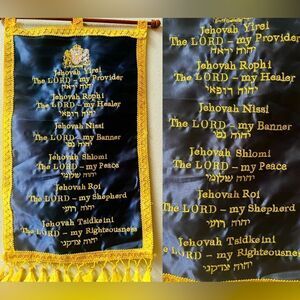 Jehovah Yirei
The LORD – my Provider
יהוה יראה
Jehovah Rophi
The LORD – my Healer
יהוה רופאי
Jehovah Nissi
The LORD – my Banner
יהוה נסי
Jehovah Shlomi
The LORD – my Peace
יהוה שלומי
Jehovah Roi
The LORD – my Shepherd
יהוה רועי
Jehovah Tsidkeini
The LORD – my Righteousness
יהוה צדקני
Jehovah Yirei
The LORD – my Provider
יהוה יראה
Jehovah Rophi
The LORD – my Healer
יהוה רופאי
Jehovah Nissi
The LORD – my Banner
יהוה נסי
Jehovah Shlomi
The LORD – my Peace
יהוה שלומי
Jehovah Roi
The LORD – my Shepherd
יהוה רועי
Jehovah Tsidkeini
The LORD – my Righteousn
יהוה צדקני